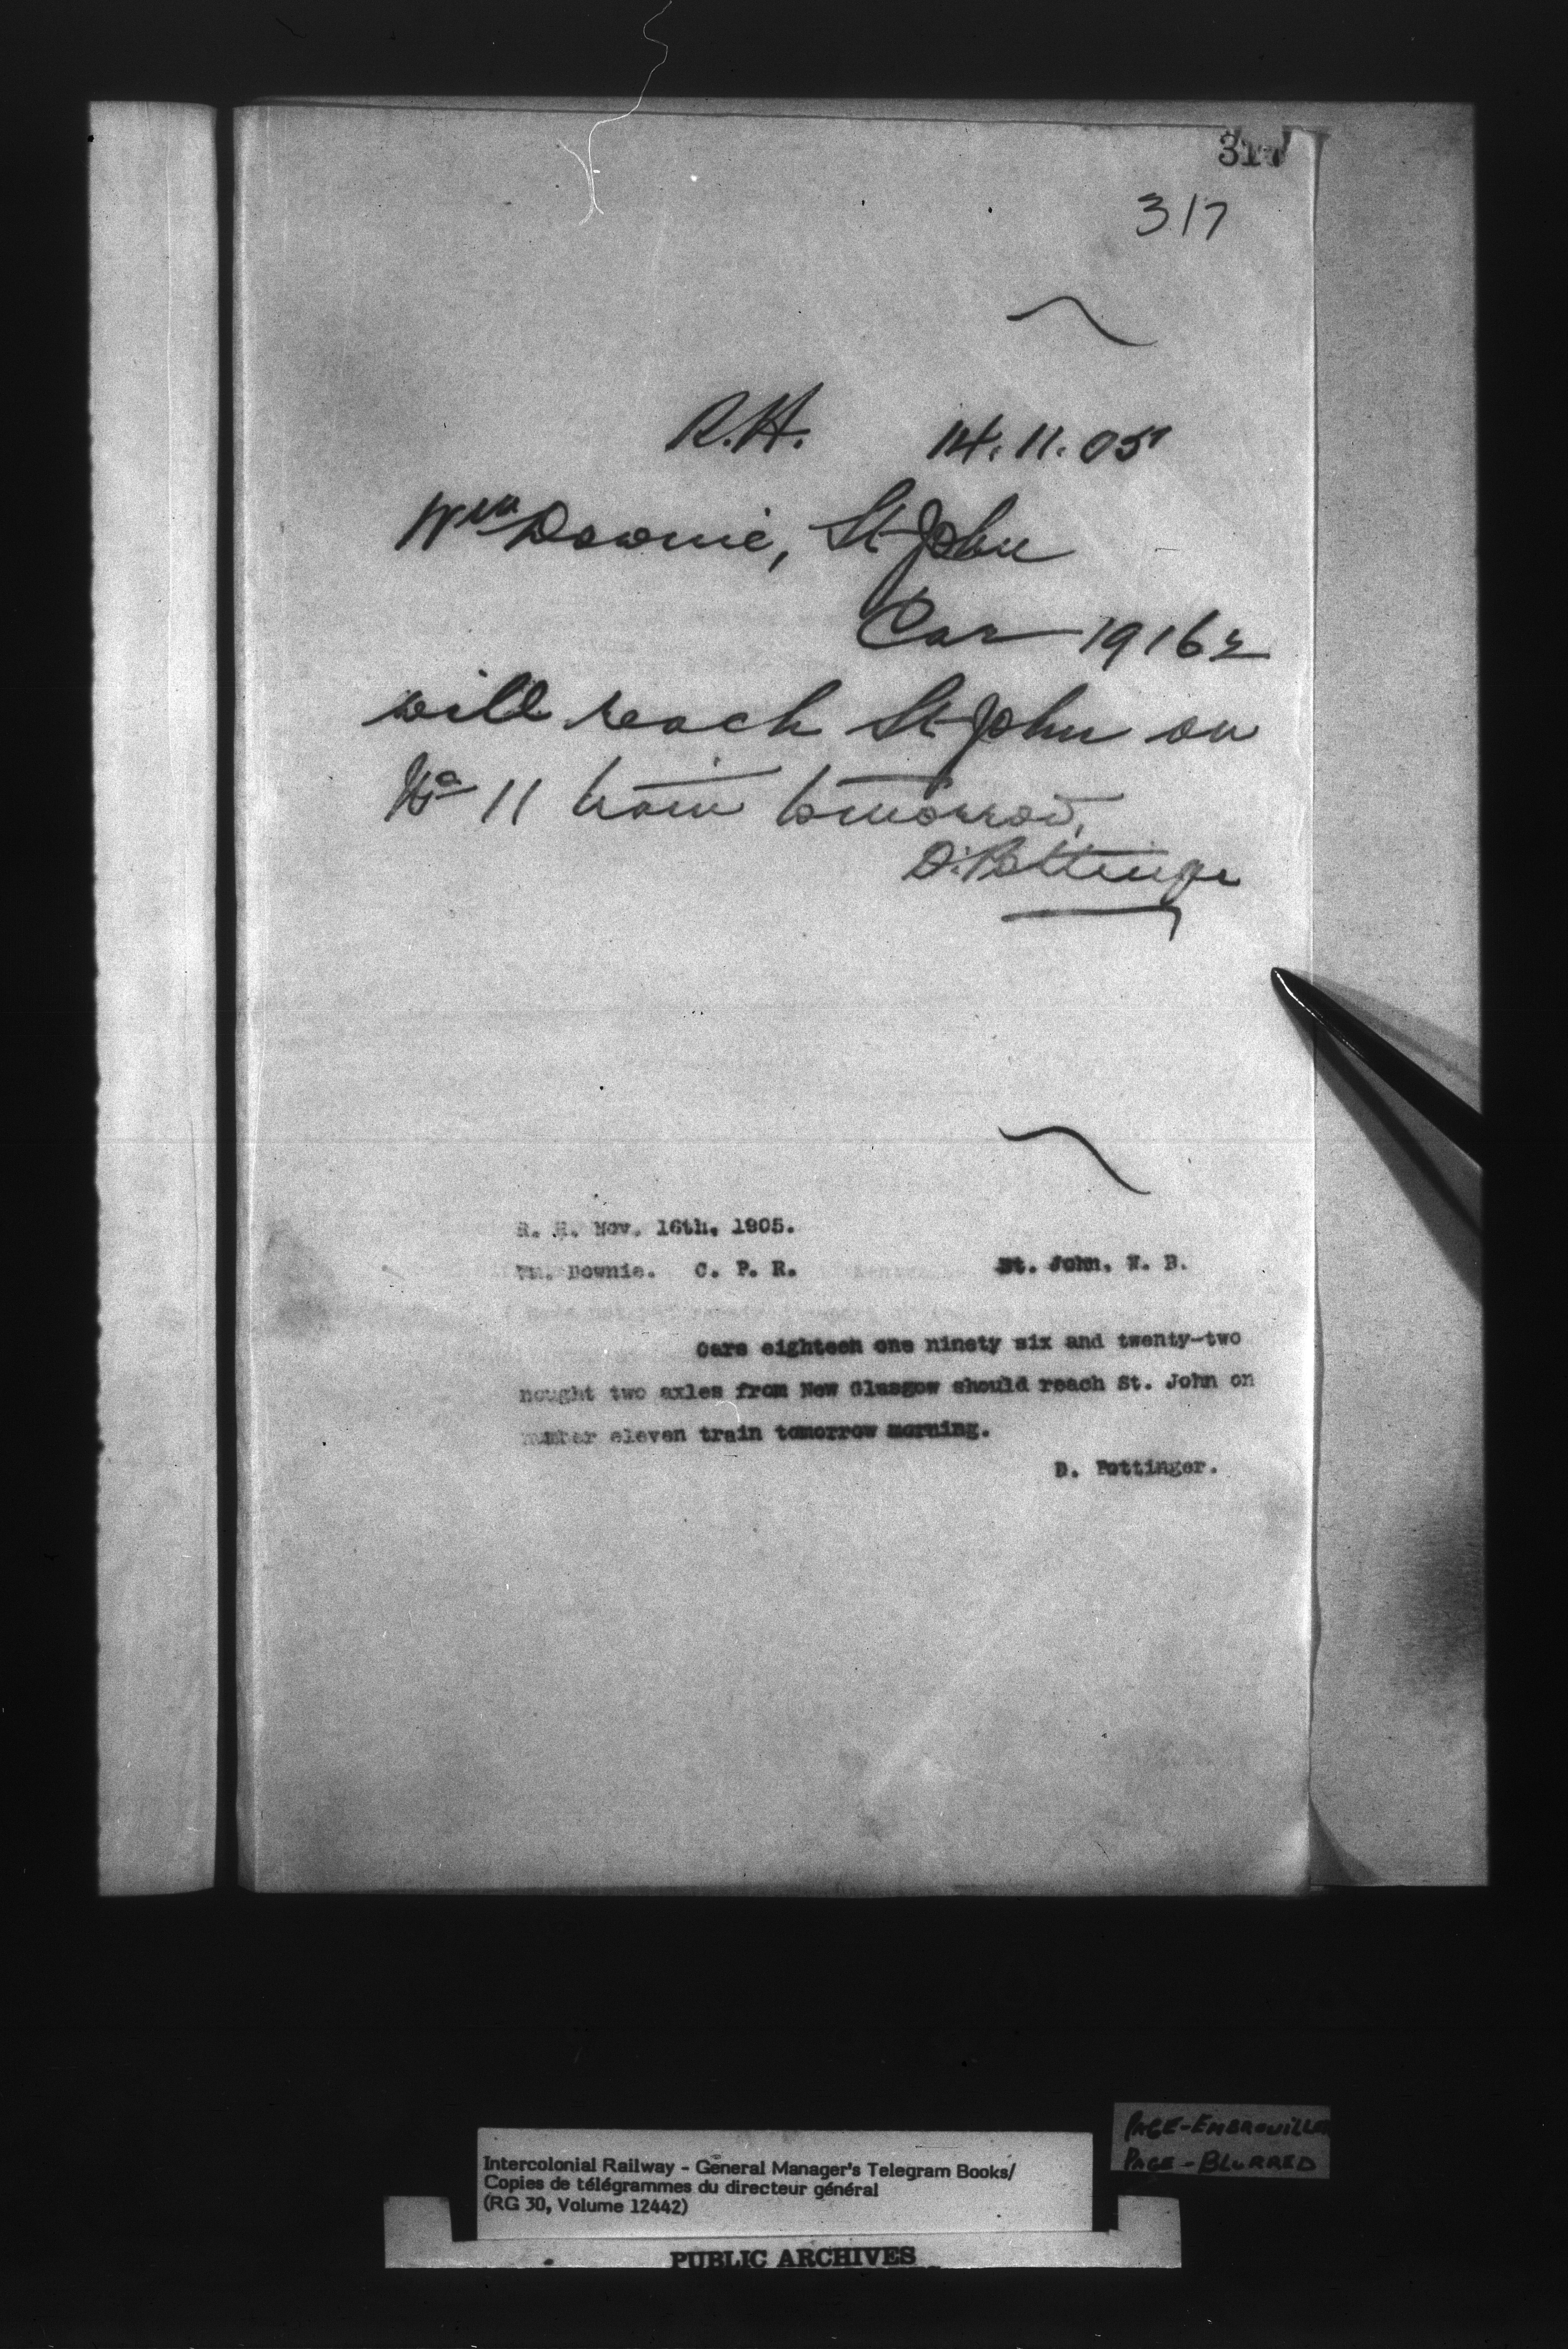 317
317
R.H. 14.11.05
Wm Downie, St John
Car 19162
will reach St John on
No 11 train tomorrow,
D. Pottinger
R. H. Nov. 16th, 1905.
Wm. Downie. C. P. R. St. John, N. B.
Cars eighteen one ninety six and twenty-two
nought two axles from New Glasgow should reach St. John on
number eleven train tomorrow morning.
D. Pottinger.
PAGE-EMBROUILLÉE
PAGE-BLURRED
Intercolonial Railway - General Manager's Telegram Books/
Copies de télégrammes du directeur général
(RG 30, Volume 12442)
PUBLIC ARCHIVES